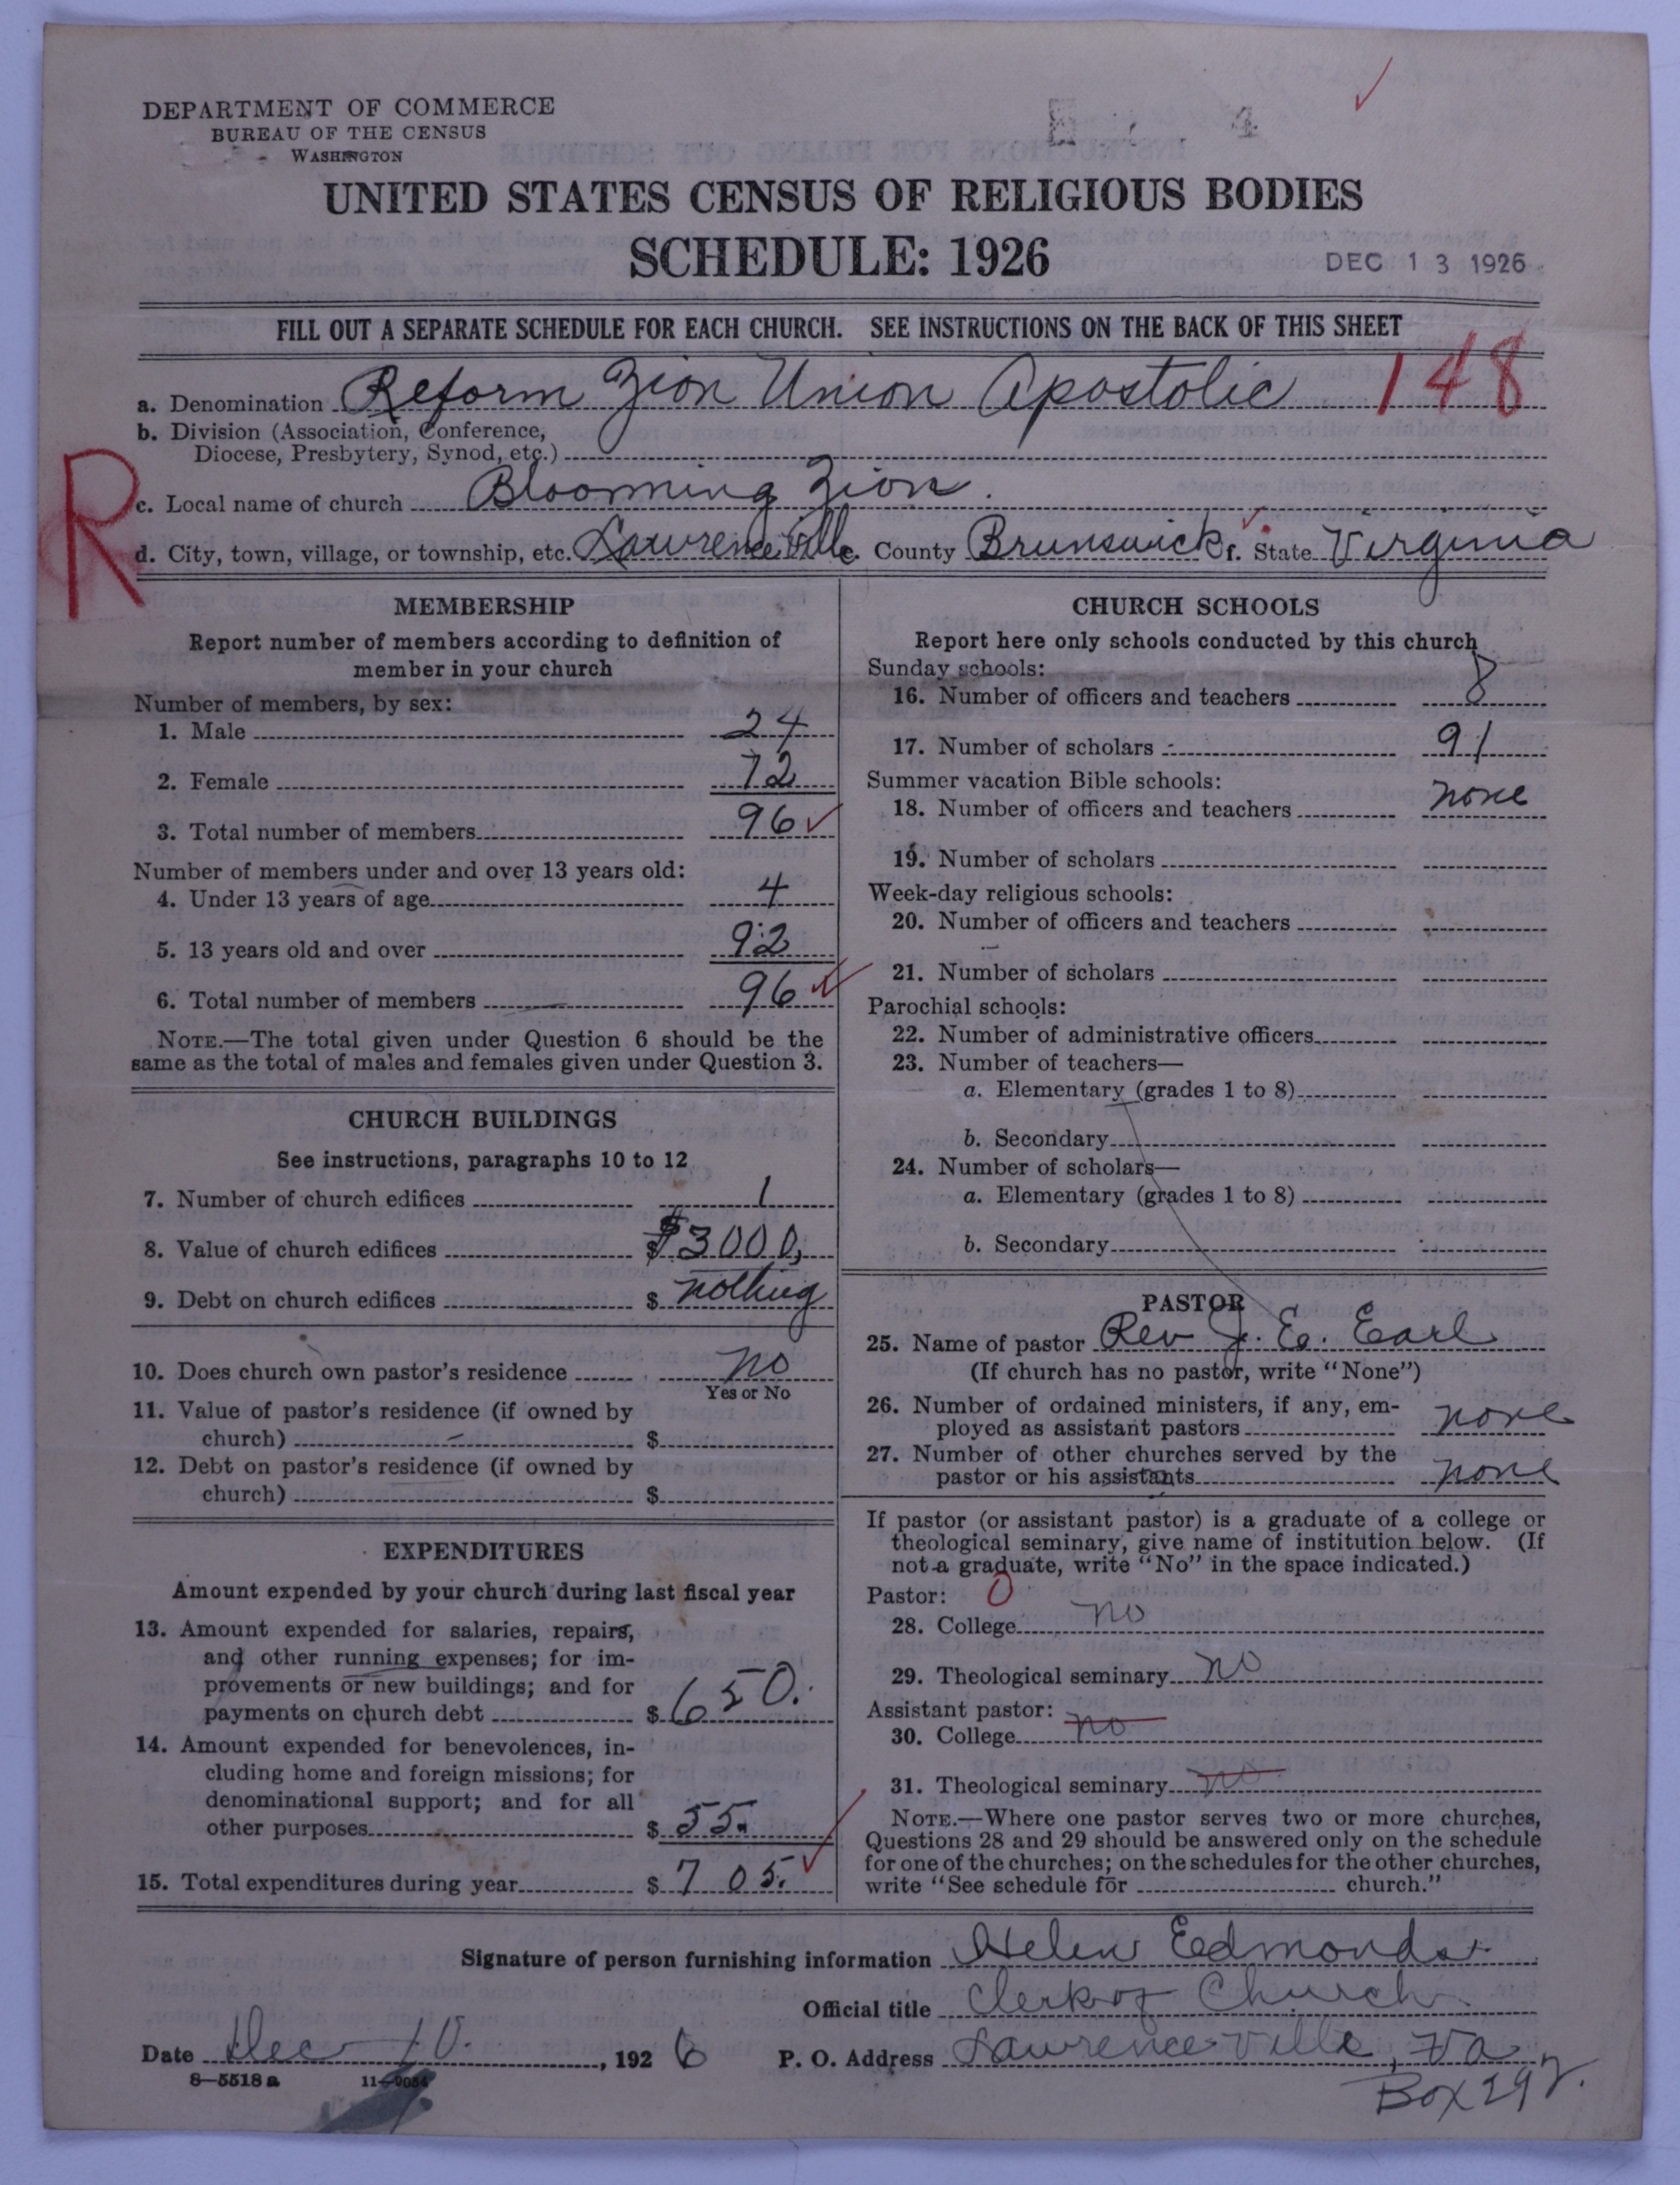 DEPARTMENT OF COMMERCE
BUREAU OF THE CENSUS
WASHINGTON
UNITED STATES CENSUS OF RELIGIOUS BODIES
SCHEDULE: 1926
DEC 13 1926
FILL OUT A SEPARATE SCHEDULE FOR EACH CHURCH. SEE INSTRUCTIONS ON THE BACK OF THIS SHEET
a. Denomination Reform Zion Union Apostolic 148
b. Division (Association, Conference,
Diocese, Presbytery, Synod, etc.)
R
c. Local name of church Blooming Zion.
d. City, town, village, or township, etc. Lawrenceville e. County Brunswick f. State Virginia
MEMBERSHIP
Report number of members according to definition of
member in your church
Number of members, by sex:
1. Male 24
2. Female 72
3. Total number of members 96
Number of members under and over 13 years old:
4. Under 13 years of age 4
5. 13 years old and over 92
6. Total number of members 96
NOTE.—The total given under Question 6 should be the
same as the total of males and females given under Question 3.
CHURCH BUILDINGS
See instructions, paragraphs 10 to 12
7. Number of church edifices 1
8. Value of church edifices $ $3000,
9. Debt on church edifices $ nothing
10. Does church own pastor's residence no
Yes or No
11. Value of pastor's residence (if owned by
church) $
12. Debt on pastor's residence (if owned by
church) $
EXPENDITURES
Amount expended by your church during last fiscal year
13. Amount expended for salaries, repairs,
and other running expenses; for im-
provements or new buildings; and for
payments on church debt $ 650.
14. Amount expended for benevolences, in-
cluding home and foreign missions; for
denominational support; and for all
other purposes $ 55.
15. Total expenditures during year $ 705.
CHURCH SCHOOLS
Report here only schools conducted by this church
Sunday schools:
16. Number of officers and teachers 8
17. Number of scholars 91
Summer vacation Bible schools:
18. Number of officers and teachers none
19. Number of scholars
Week-day religious schools:
20. Number of officers and teachers
21. Number of scholars
Parochial schools:
22. Number of administrative officers
23. Number of teachers—
a. Elementary (grades 1 to 8)
b. Secondary
24. Number of scholars—
a. Elementary (grades 1 to 8)
b. Secondary
PASTOR
25. Name of pastor Rev J. E. Earl
(If church has no pastor, write "None")
26. Number of ordained ministers, if any, em-
ployed as assistant pastors none
27. Number of other churches served by the
pastor or his assistants none
If pastor (or assistant pastor) is a graduate of a college or
theological seminary, give name of institution below. (If
not a graduate, write "No" in the space indicated.)
Pastor: 0
28. College no
29. Theological seminary no
Assistant pastor:
30. College no
31. Theological seminary no
NOTE.—Where one pastor serves two or more churches,
Questions 28 and 29 should be answered only on the schedule
for one of the churches; on the schedules for the other churches,
write "See schedule for church."
Signature of person furnishing information Helen Edmonds
Official title Clerk of Church
Date Dec 10. , 1926 P. O. Address Lawrenceville, Va
8—5518a 11—9054
Box 292.